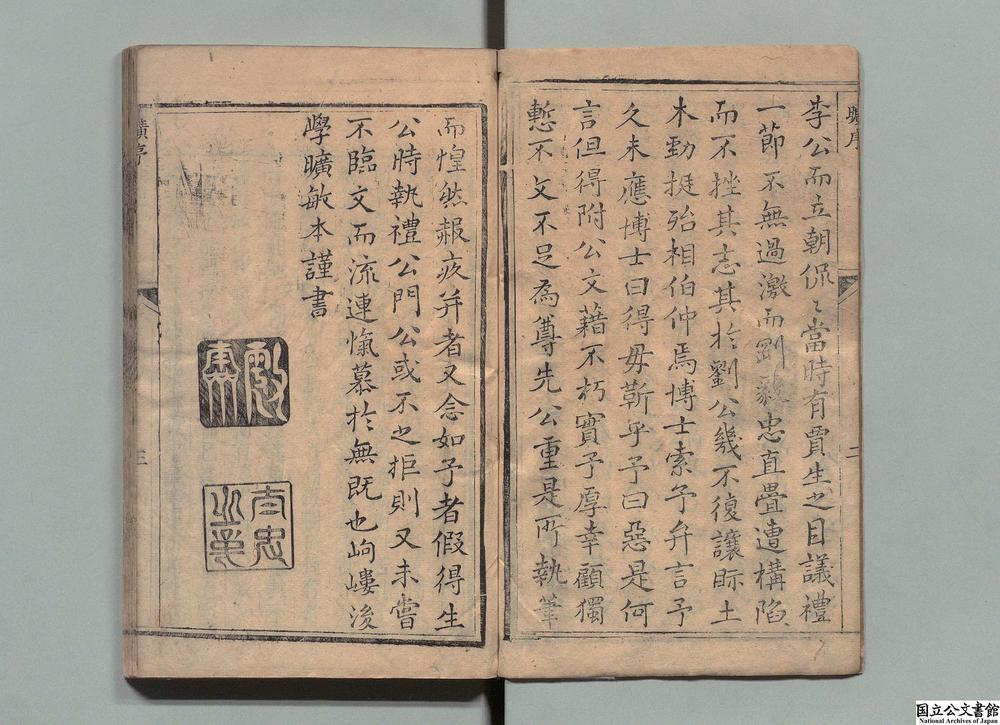 李公而立朝侃〻當時有賈生之目議禮
一節不無過激而劉毅忠直疊遭構陷
而不挫其志其於劉公幾不復讓眎土
木勁挺殆相伯仲焉博士索予弁言予
久未應博士曰得毋靳乎予曰惡是何
言但得附公文藉不朽實予厚幸顧獨
慙不文不足為尊先公重是所執筆
而惶然赧疢并者又念如予者假得生
公時執禮公門公或不之拒則又未嘗
不臨文而流連愾慕於無既也岣嶁後
學曠敏本謹書
曠序
二
曠序
三
国立公文書館
National Archives of Japan